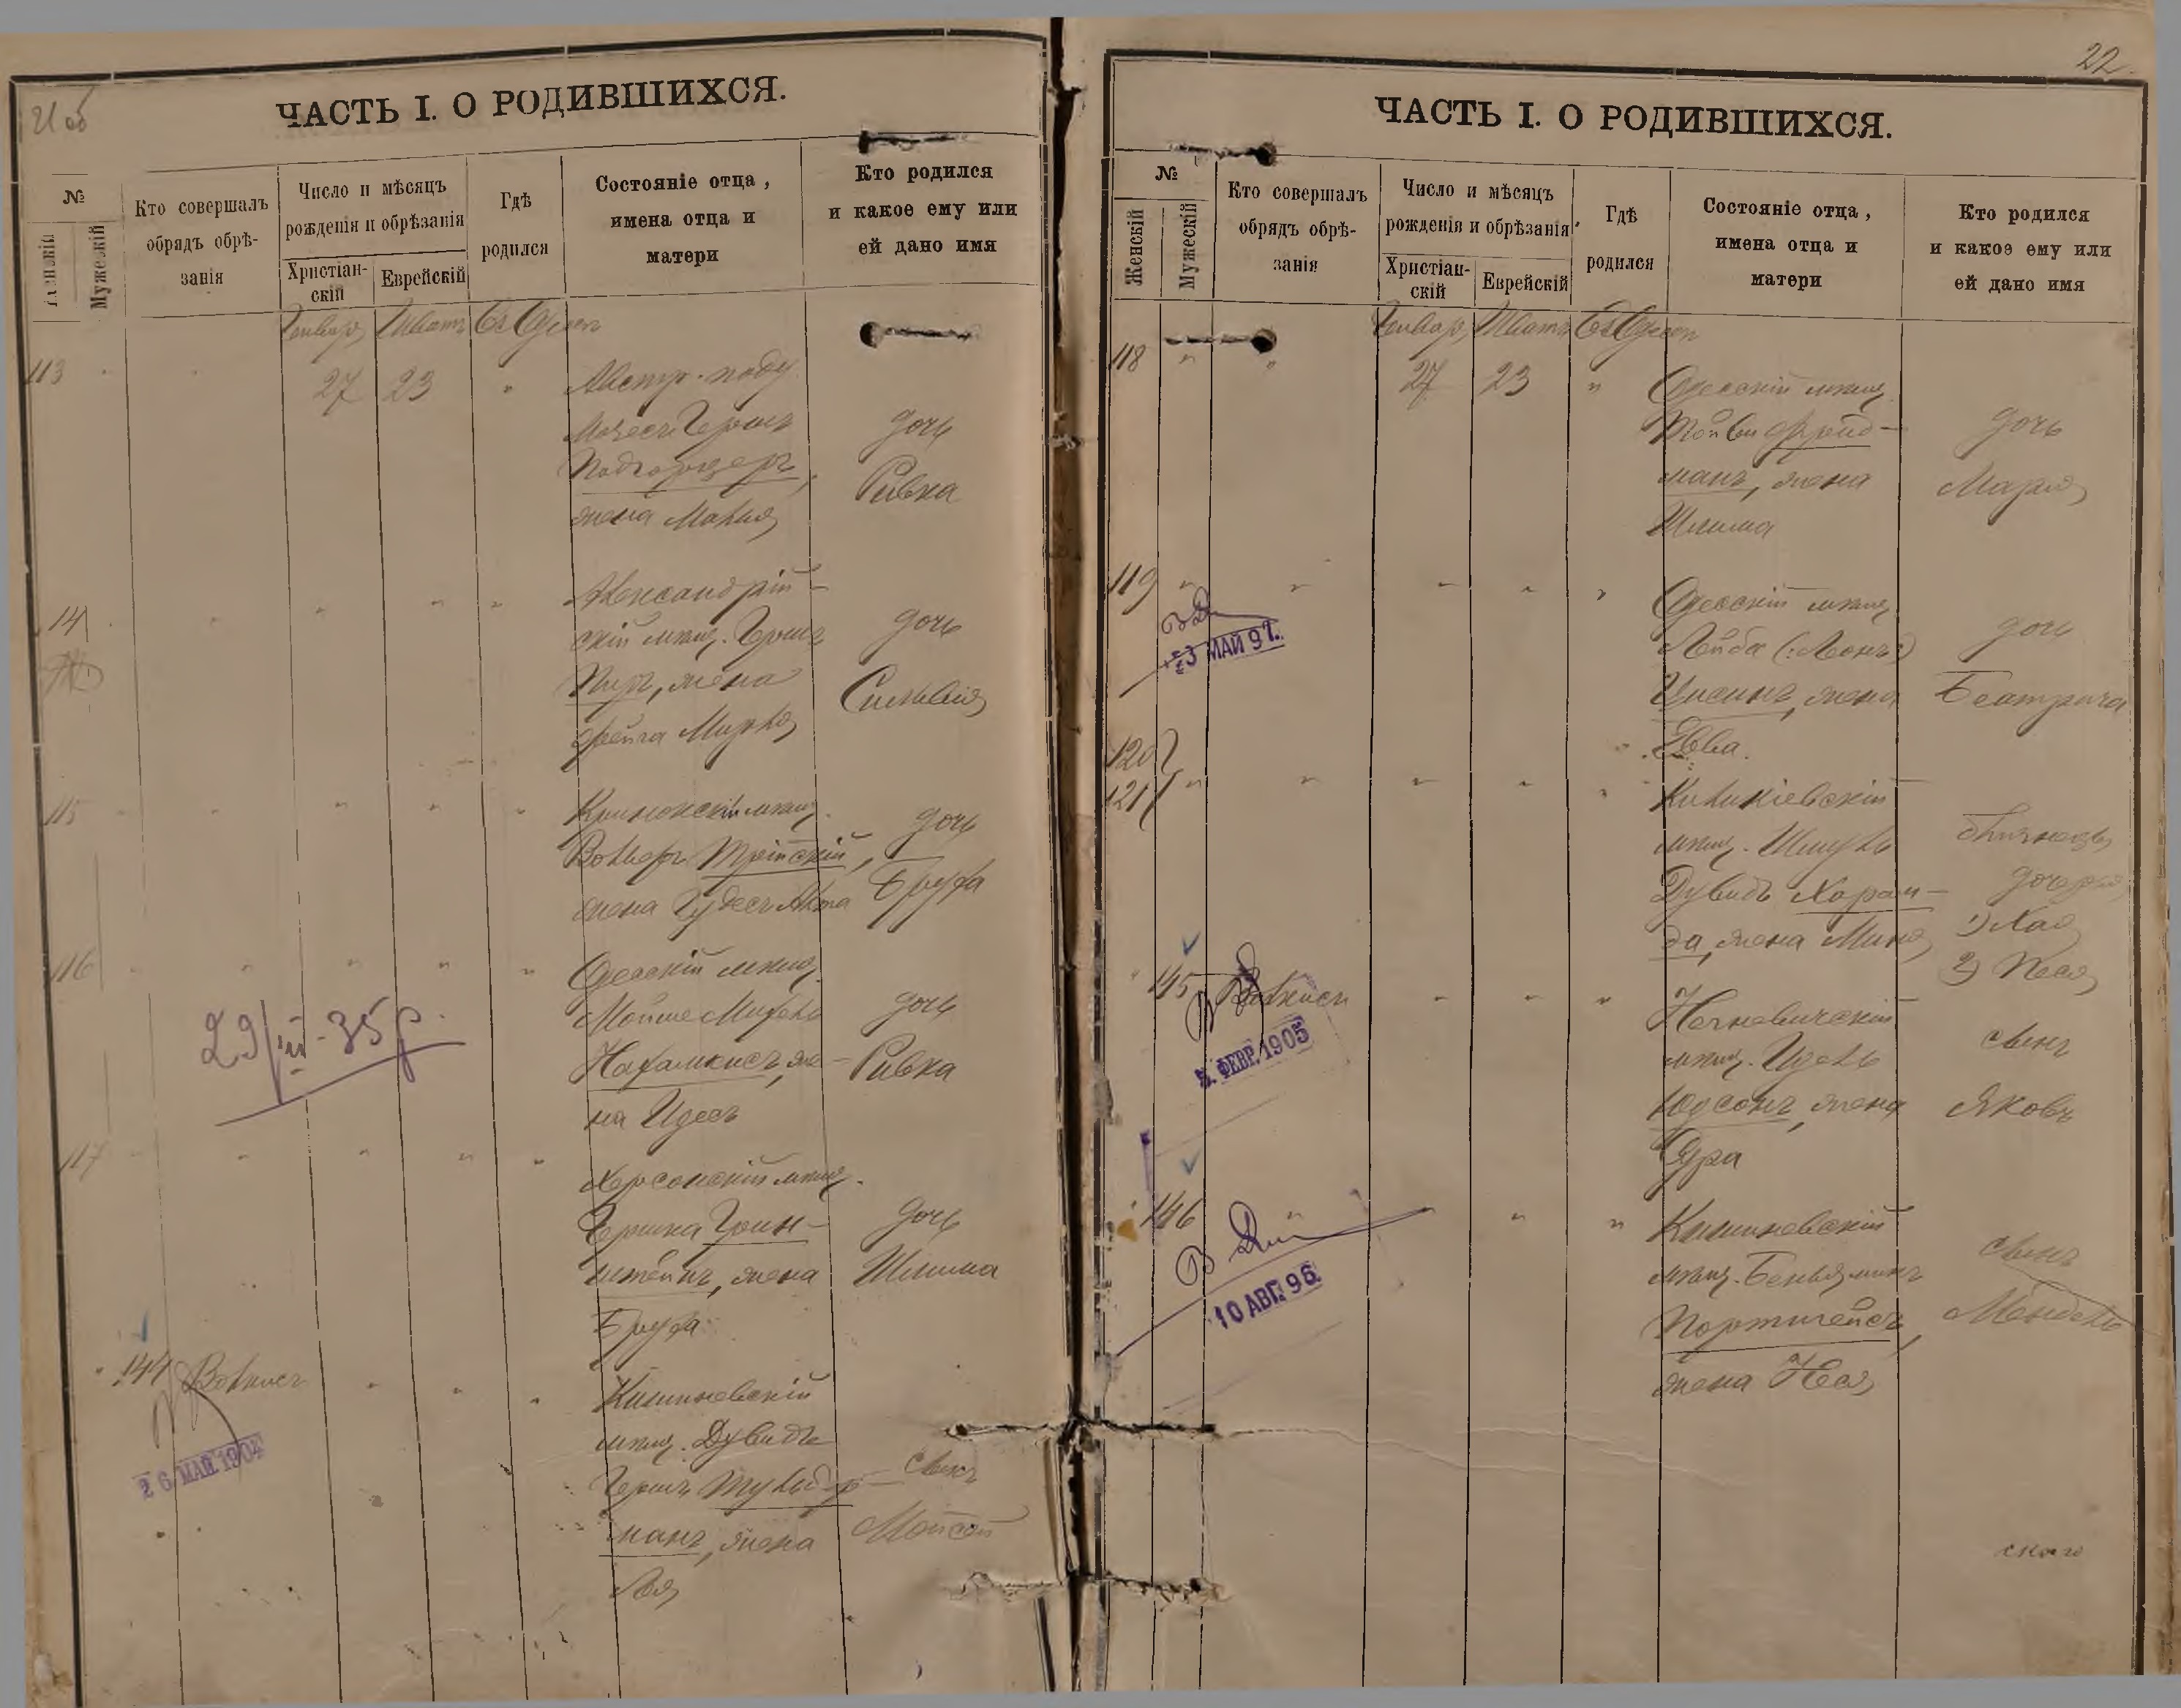 21 об
ЧАСТЬ I. О РОДИВШИХСЯ.
№
Женскій
Мужескій
Кто совершалъ
обрядъ обрѣ-
занія
Число и мѣсяцъ
рожденія и обрѣзанія
Христіан-
скій
Еврейскій
Гдѣ
родился
Состояніе отца,
имена отца и
матери
Кто родился
и какое ему или
ей дано имя
Январь Шватъ Въ Одессѣ
113 27 23 Австр. подд.
Мозесъ Гершъ
Подгорцеръ,
жена Малья
дочь
Ривка
114 Александрій-
скій мѣщ. Гершъ
Пиръ, жена
Фейга Мирля
дочь
Сильвія
115 мѣщ.
Вольфъ
жена Гудесъ
дочь
Бруха
116 Одесскій мѣщ.
Мойше Михель
Нахамкисъ, же-
на Идесъ
дочь
Ривка
29/III-35 р.
117 Херсонскій мѣщ.
Гершка Грин-
штейнъ, жена
Бруха
дочь
Шлима
144 Вольисъ
Кишиневскій
мѣщ. Дувидъ
Гершъ Тульд-
манъ, жена
Лея
сынъ
Мойсей
26 МАЙ 1904
22.
ЧАСТЬ I. О РОДИВШИХСЯ.
№
Женскій
Мужескій
Кто совершалъ
обрядъ обрѣ-
занія
Число и мѣсяцъ
рожденія и обрѣзанія
Христіан-
скій
Еврейскій
Гдѣ
родился
Состояніе отца,
имена отца и
матери
Кто родился
и какое ему или
ей дано имя
Январь Шватъ Въ Одессѣ
118 27 23 Одесскій мѣщ.
Тойви Фрейд-
манъ, жена
Шлима
дочь
Марья
119 Одесскій мѣщ.
Лейба (:Леонъ:)
Цисинъ, жена
Ева.
дочь
Беатриса
23 МАЙ 97.
120
121 Киликіевскій
мѣщ. Шмуль
Дувидъ Харан-
да, жена Миня
близнецы
дочери
1) Хая
2) Песя
145 Вольисъ
мѣщ. Идель
Юдсонъ, жена
сынъ
Яковъ
5. ФЕВР. 1905
146 Кишиневскій
мѣщ. Беньяминъ
Портнгейсъ,
жена Неся
сынъ
Мендель
10 АВГ. 96.